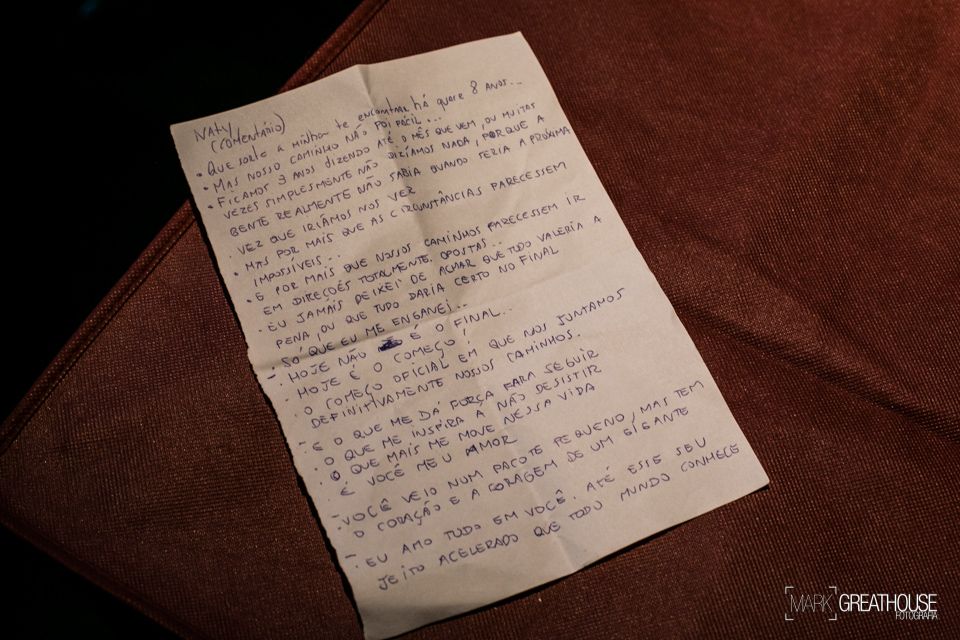 NATY
(COMENTÁRIO)
• QUE SORTE A MINHA TE ENCONTRAR HÁ QUASE 8 ANOS...
• MAS NOSSO CAMINHO NÃO FOI FÁCIL...
• FICAMOS 3 ANOS DIZENDO ATÉ O MÊS QUE VEM, OU MUITAS
VEZES SIMPLESMENTE NÃO DIZÍAMOS NADA, PORQUE A
GENTE REALMENTE NÃO SABIA QUANDO SERIA A PRÓXIMA
VEZ QUE IRÍAMOS NOS VER
• MAS POR MAIS QUE AS CIRCUNSTÂNCIAS PARECESSEM
IMPOSSÍVEIS...
• E POR MAIS QUE NOSSOS CAMINHOS PARECESSEM IR
EM DIREÇÕES TOTALMENTE OPOSTAS...
• EU JAMAIS DEIXEI DE ACHAR QUE TUDO VALERIA A
PENA, OU QUE TUDO DARIA CERTO NO FINAL
• SÓ QUE EU ME ENGANEI...
- HOJE NÃO É O FINAL...
• HOJE É O COMEÇO!
• O COMEÇO OFICIAL EM QUE NOS JUNTAMOS
DEFINITIVAMENTE NOSSOS CAMINHOS.
- E O QUE ME DÁ FORÇA PARA SEGUIR
• O QUE ME INSPIRA A NÃO DESISTIR
• O QUE MAIS ME MOVE NESSA VIDA
É VOCÊ MEU AMOR
- VOCÊ VEIO NUM PACOTE PEQUENO, MAS TEM
O CORAÇÃO E A CORAGEM DE UM GIGANTE
- EU AMO TUDO EM VOCÊ. ATÉ ESSE SEU
JEITO ACELERADO QUE TODO MUNDO CONHECE
[MARK] GREATHOUSE
FOTOGRAFIA